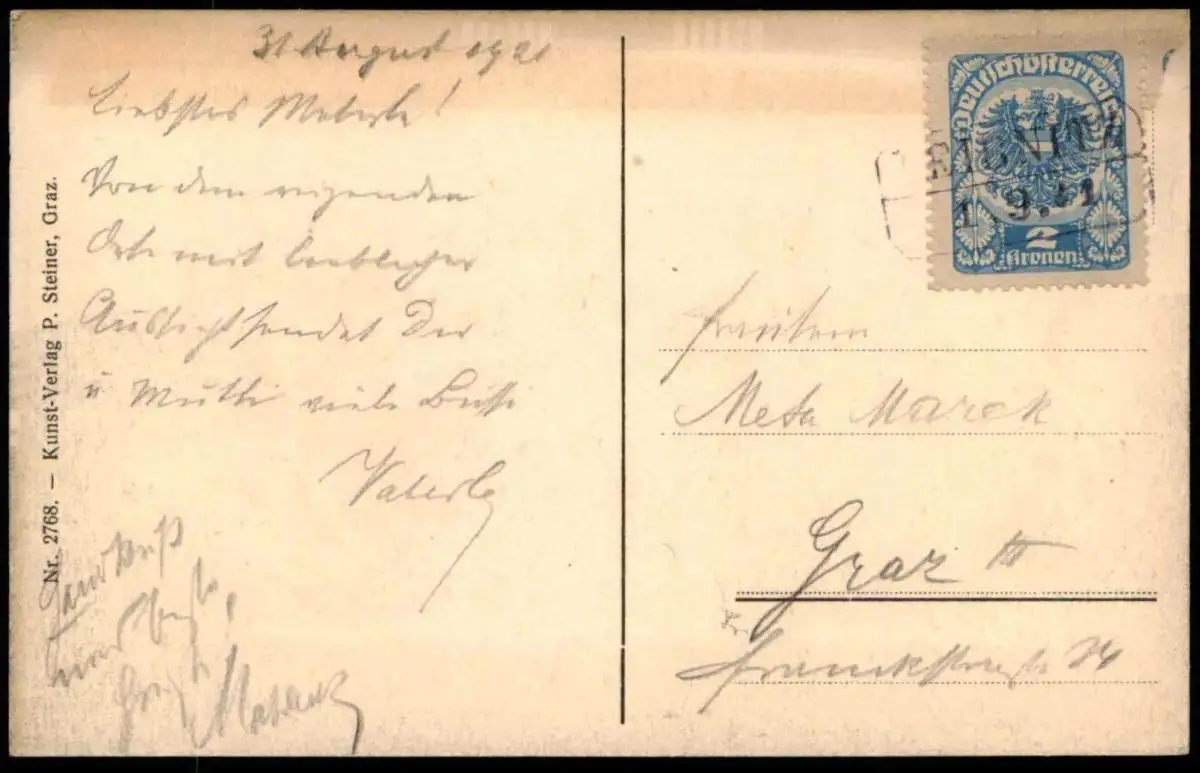 31 August 1921
Liebstes Meterle!
Von dem reizenden
Orte mit lieblicher
Aussicht sendet Dir
u Mutti viele Bussi
Vaterle
Handkuß
und
Nr. 2768. — Kunst-Verlag P. Steiner, Graz.
Deutschösterreich
2
Kronen
1.9.21
Fräulein
Meta Marek
Graz III
Franckstraße